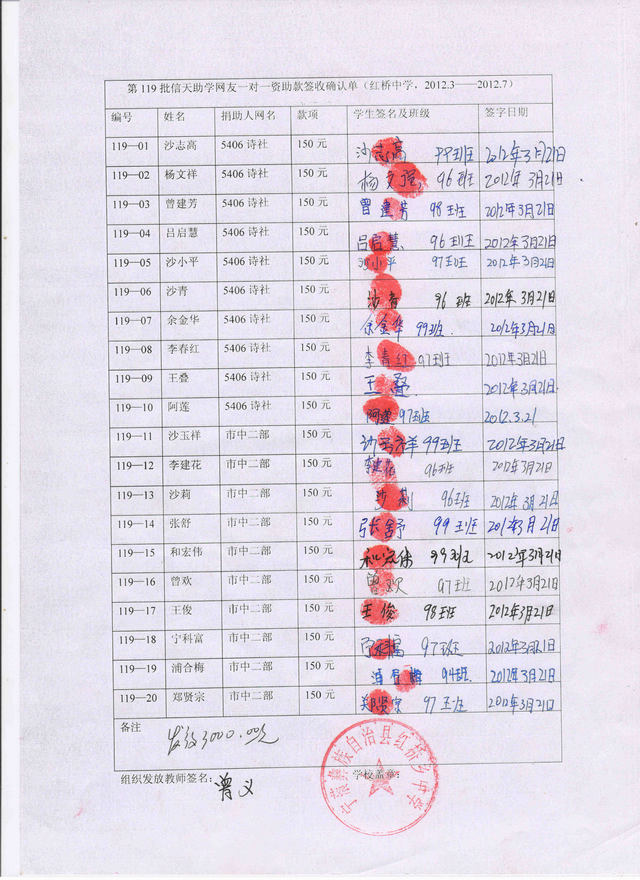 第119批信天助学网友一对一资助款签收确认单（红桥中学，2012.3——2012.7）
编号 姓名 捐助人网名 款项 学生签名及班级 签字日期
119—01 沙志高 5406诗社 150元 沙志高 99班 2012年3月21日
119—02 杨文祥 5406诗社 150元 杨文强 96班 2012年3月21日
119—03 曾建芳 5406诗社 150元 曾建芳 98班 2012年3月21日
119—04 吕启慧 5406诗社 150元 吕启慧 96班 2012年3月21日
119—05 沙小平 5406诗社 150元 沙小平 97班 2012年3月21日
119—06 沙青 5406诗社 150元 沙青 96班 2012年3月21日
119—07 余金华 5406诗社 150元 余金华 99班. 2012年3月21日
119—08 李春红 5406诗社 150元 李春红 97班 2012年3月21日
119—09 王叠 5406诗社 150元 王叠 2012年3月21日
119—10 阿莲 5406诗社 150元 阿莲 97班 2012.3.21
119—11 沙玉祥 市中二部 150元 沙玉祥 99班 2012年3月21日
119—12 李建花 市中二部 150元 李建花 96班 2012年3月21日
119—13 沙莉 市中二部 150元 沙莉 96班 2012年3月21日
119—14 张舒 市中二部 150元 张舒 99班 2012年3月21日
119—15 和宏伟 市中二部 150元 和宏伟 99班 2012年3月21日
119—16 曾欢 市中二部 150元 曾欢 97班 2012年3月21日
119—17 王俊 市中二部 150元 王俊 98班 2012年3月21日
119—18 宁科富 市中二部 150元 宁科福 97班 2012年3月21日
119—19 浦合梅 市中二部 150元 94班 2012年3月21日
119—20 郑贤宗 市中二部 150元 郑贤宗 97班 2012年3月21日
备注
发放3000.00元
组织发放教师签名：曾义 学校盖章：
宁蒗彝族自治县红桥乡中学